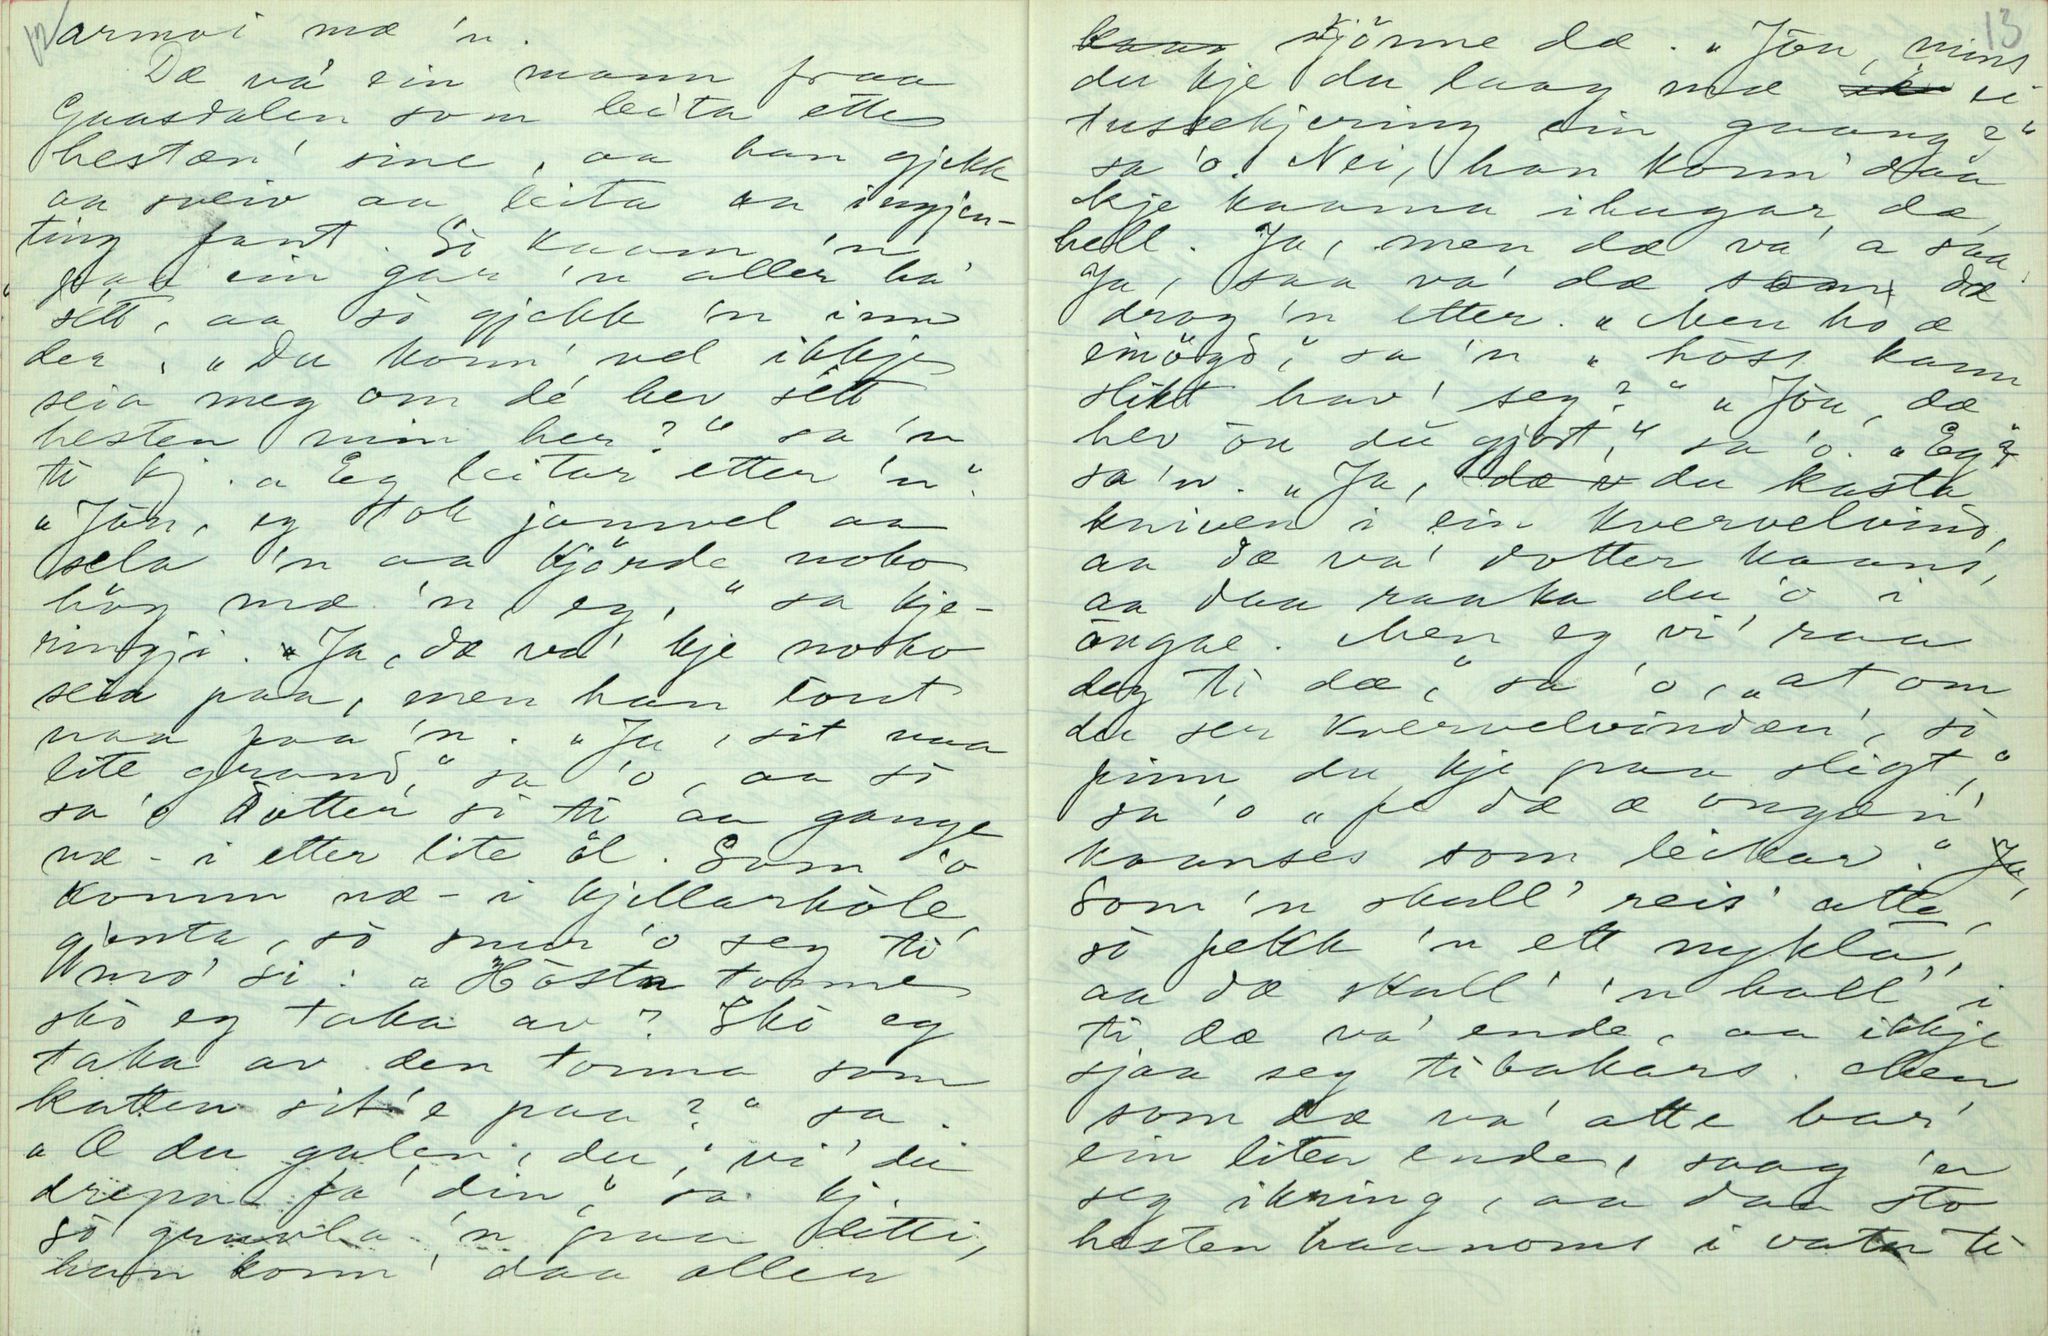 12
armoi mæ 'n.
Dæ va' ein mann fraa
Gaasdalen som leita ette
hestæn' sine, aa han gjekk
aa sveiv aa leita aa ingjen-
ting fant. Så kaam 'n
paa ein gar 'n aller ha'
sett, aa så gjekk 'n inn
der. "Du konn' vel ikkje
seia meg om dé hev sett
hesten min her?" sa 'n
ti kj. "Eg leitar etter 'n".
"Jöu, eg tok jamvel aa
sela 'n aa kjörde noko
höy mæ 'n eg," sa kje-
ringji. "Ja, dæ va' kje noko
seia paa, men han tont
naa paa 'n. "Ja, sit naa
lite grand," sa 'o, aa så
sa 'o dotter si ti aa gange
næ-i etter lite öl. Som 'o
komm næ-i kjellarhôlé
gjenta, så snur 'o seg ti
mo' si: "Hôsta tonne
skô eg taka av? Skô eg
taka av den tonna som
katten sit'e paa?" sa.
"Æ du galen, du, vi' du
drepa fa' din," sa kj.
Så gruvla 'n paa detti,
han konn' daa aller
13
kjönne dæ. "Jöu, mins
du kje du laag mæ ei
tussekjering ein gaang?"
sa 'o. Nei, han konn' daa
kje kaama ihugar dæ,
hell. Ja, men dæ va' a saa.
Ja, saa va' dæ som dæ
drog 'n etter. "Men ho æ
einögd," sa 'n "hôss kann
slikt hav' seg?" "Jöu, dæ
hev öu du gjort," sa 'o. "Eg?"
sa 'n. "Ja, du kasta
kniven i ein kvervelvind,
aa dæ va' dotter kaans,
aa daa raaka du 'o i
öugae. Men eg vi' raa
deg ti dæ," sa 'o, "at om
du ser kvervelvindæn', så
finn du kje paa sligt,"
sa 'o "fe dæ æ ongæn'
kaanses som leikar." Ja,
Som 'n skull' reis' atte,
så fekk 'n ett nykla,
aa dæ skull' 'n hall' i
ti dæ va' ende, aa ikkje
sjaa seg tibakars. Men
som dæ va' atte bar'
ein liten ende, saag 'n
seg ikring, aa daa sto
hesten haanoms i vatn ti